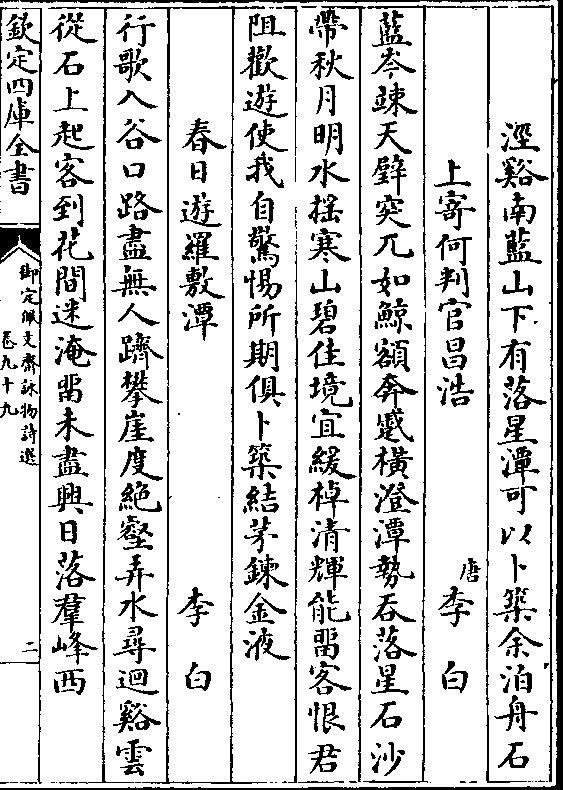 涇谿南藍山下有落星潭可以卜築余泊舟石
上寄何判官昌浩　唐李白
藍岑竦天壁突兀如鯨額奔蹙橫澄潭勢吞落星石沙
帶秋月明水揺寒山碧佳境宜緩棹清輝能留客恨君
阻歡遊使我自驚惕所期俱卜築結茅鍊金液
春日遊羅敷潭　李白
行歌入谷口路盡無人躋攀崖度絶壑弄水尋迴谿雲
從石上起客到花間迷淹留未盡興日落羣峰西
欽定四庫全書
御定佩文齋詠物詩選
卷九十九
二